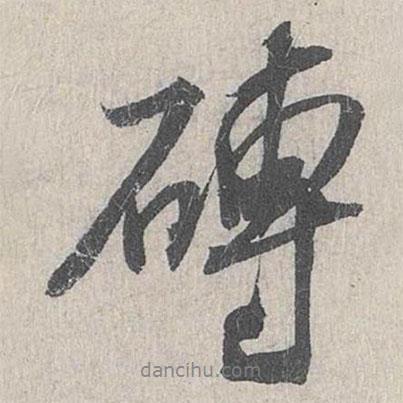 磚
dancihu.com